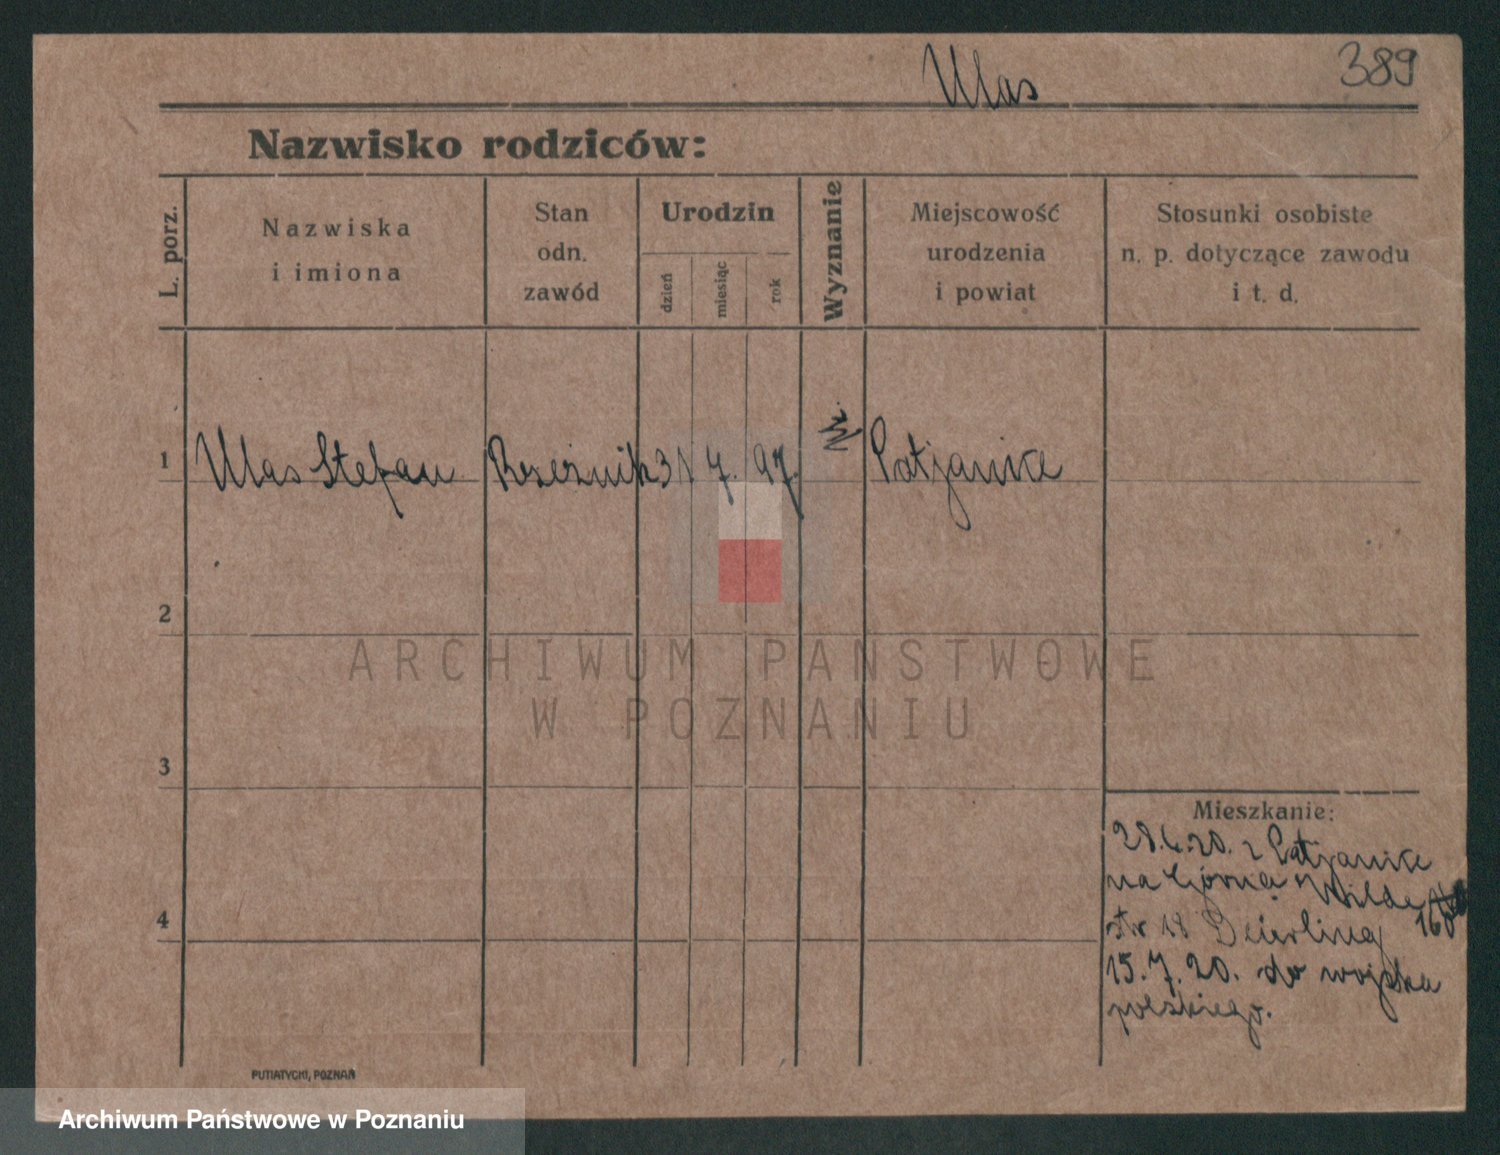 Ulas
389
Nazwisko rodziców:
L. porz.
Nazwiska
i imiona
Stan
odn.
zawód
Urodzin
dzień
miesiąc
rok
Wyznanie
Miejscowość
urodzenia
i powiat
Stosunki osobiste
n. p. dotyczące zawodu
i t. d.
1
Ulas Stefan
Rzeźnik
31
7.
97.
2
3
4
Mieszkanie:
28.6.20. z
na Górną Wildę
160
str 18
15.7.20. do wojska
polskiego.
PUTIATYCKI, POZNAŃ
ARCHIWUM PAŃSTWOWE
W POZNANIU
Archiwum Państwowe w Poznaniu